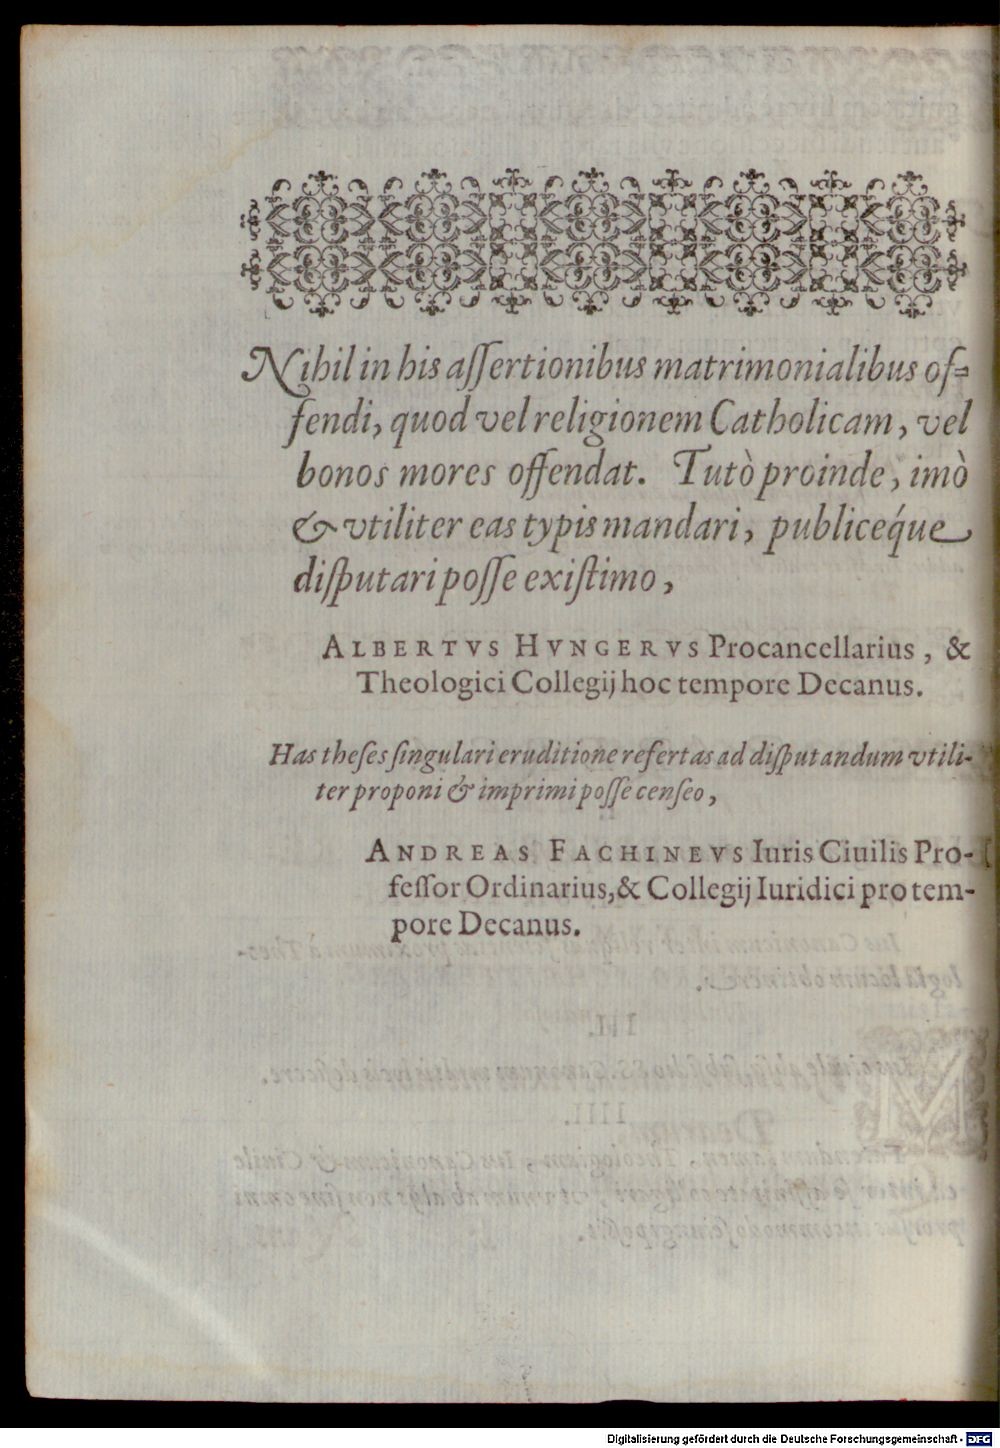 Nihil in his aſſertionibus matrimonialibus of-
fendi, quod vel religionem Catholicam, vel
bonos mores offendat. Tutò proinde, imò
& vtiliter eas typis mandari, publiceq́ue
diſputari poſſe exiſtimo,
ALBERTVS HVNGERVS Procancellarius, &
Theologici Collegij hoc tempore Decanus.
Has theſes ſingulari eruditione refertas ad diſputandum vtili-
ter proponi & imprimi poſſe cenſeo,
ANDREAS FACHINEVS Iuris Ciuilis Pro-
feſſor Ordinarius, & Collegij Iuridici pro tem-
pore Decanus.
Digitalisierung gefördert durch die Deutsche Forschungsgemeinschaft - DFG